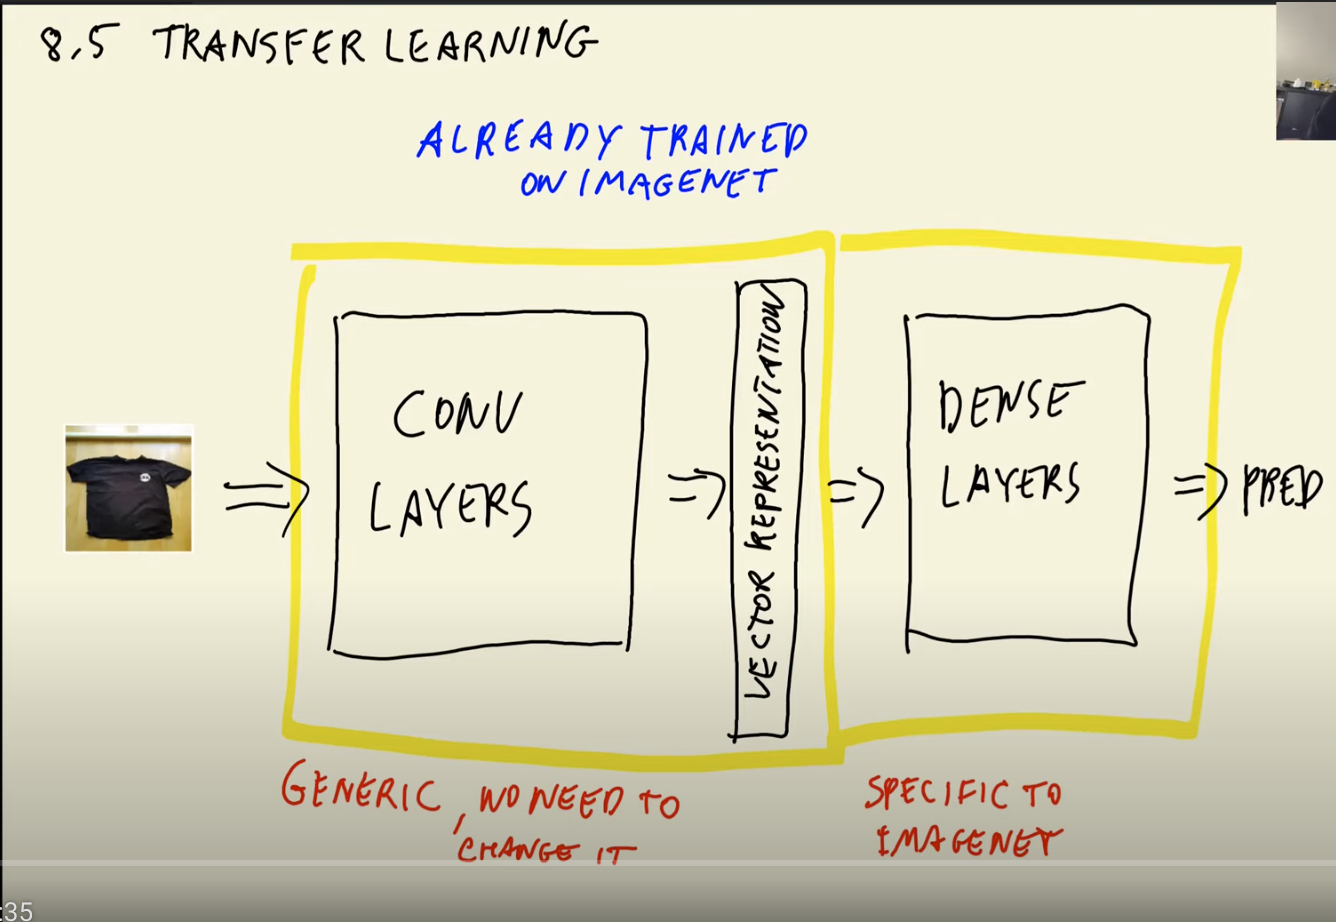 8.5 TRANSFER LEARNING
ALREADY TRAINED
ON IMAGENET
CONV
LAYERS
VECTOR REPRESENTATION
DENSE
LAYERS
PRED
GENERIC, NO NEED TO
CHANGE IT
SPECIFIC TO
IMAGENET
:35